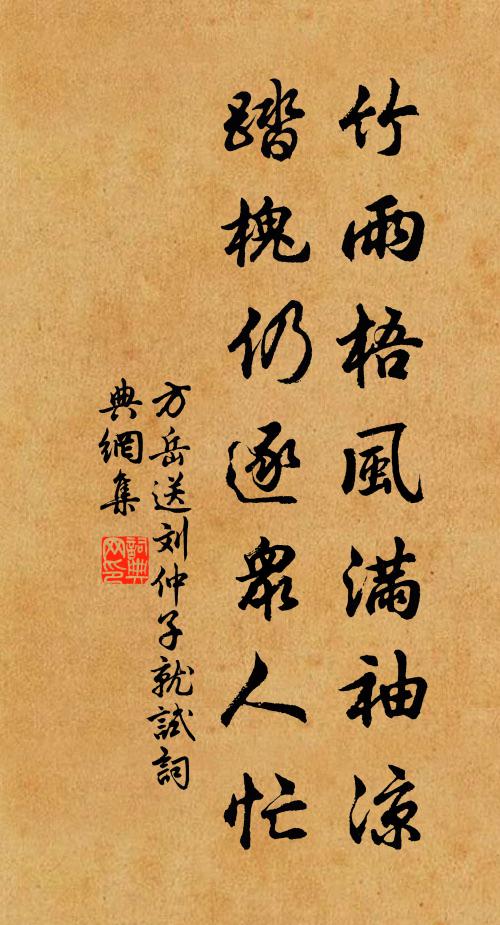 竹雨梧風滿袖涼
踏槐仍逐眾人忙
方岳送刘仲子就試詞
典網集
詞典網印